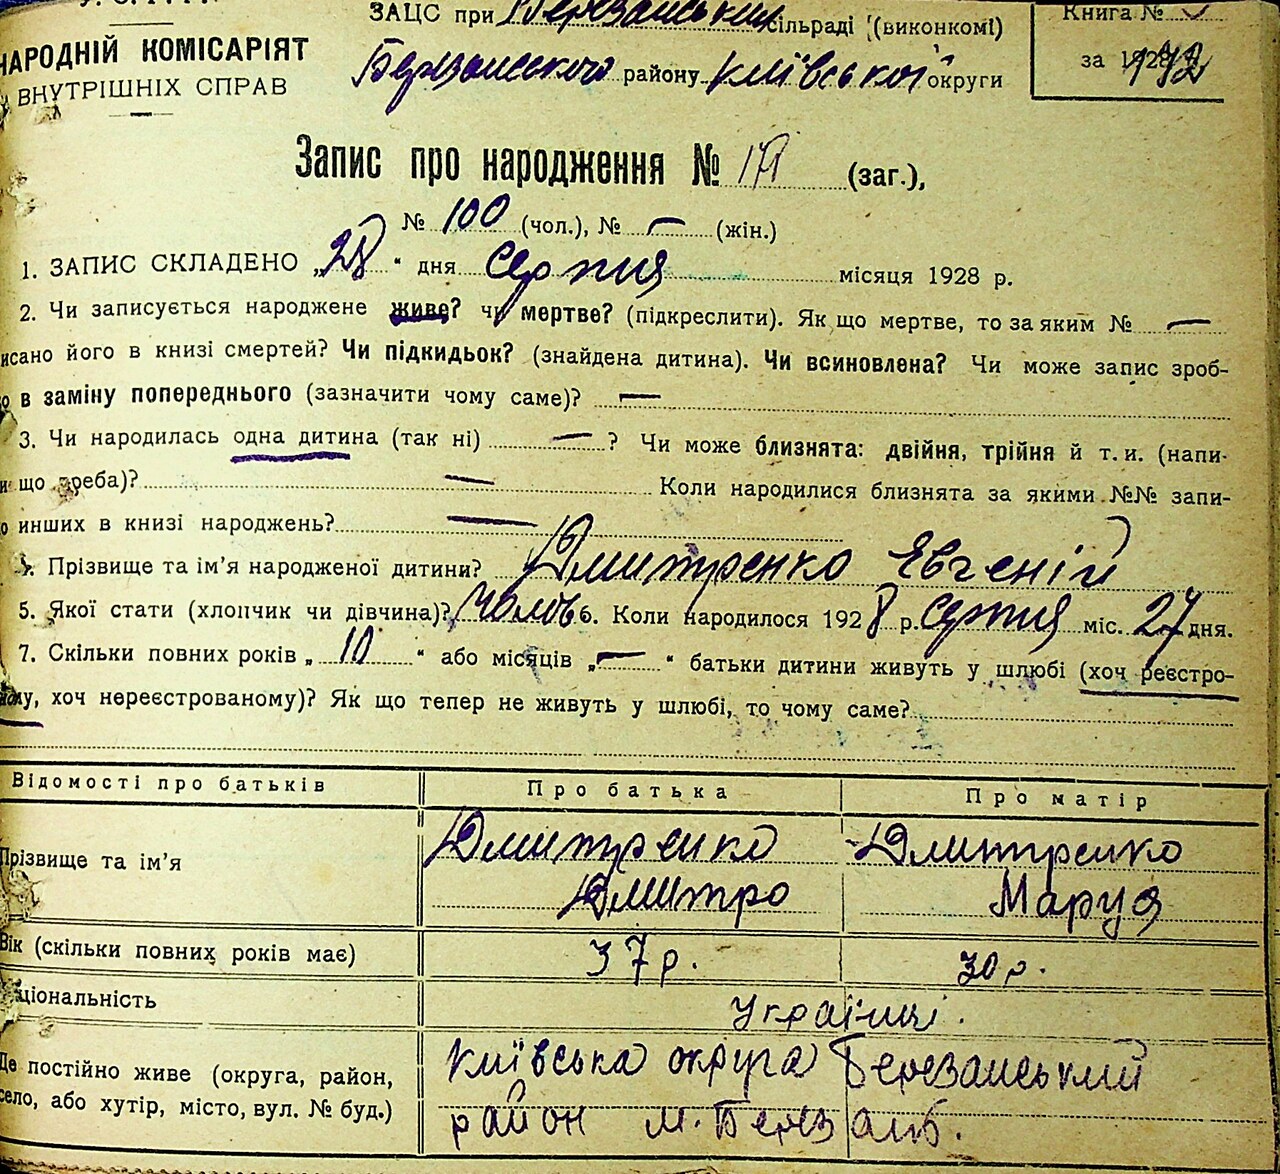 ЗАЦС при Березанським сільраді (виконкомі)
Книга №
НАРОДНІЙ КОМІСАРІЯТ
ВНУТРІШНІХ СПРАВ
Березанського району Київської округи
за 1928
Запис про народження № 171 (заг.),
№ 100 (чол.), № — (жін.)
1. ЗАПИС СКЛАДЕНО „28“ дня серпня місяця 1928 р.
2. Чи записується народжене живе? чи мертве? (підкреслити). Як що мертве, то за яким № —
исано його в книзі смертей? Чи підкидьок? (знайдена дитина). Чи всиновлена? Чи може запис зроб-
о в заміну попереднього (зазначити чому саме)? —
3. Чи народилась одна дитина (так ні) — ? Чи може близнята: двійня, трійня й т. и. (напи-
що треба)? — Коли народилися близнята за якими №№ запи-
о инших в книзі народжень? —
4. Прізвище та ім’я народженої дитини? Дмитренко Евгеній
5. Якої стати (хлопчик чи дівчина)? чолов 6. Коли народилося 1928 р. серпня міс. 27 дня.
7. Скільки повних років „10“ або місяців „—“ батьки дитини живуть у шлюбі (хоч реєстро-
ному, хоч нереєстрованому)? Як що тепер не живуть у шлюбі, то чому саме?
Відомості про батьків Про батька Про матір
Прізвище та ім’я Дмитренко Дмитренко
Дмитро Маруся
Вік (скільки повних років має) 37 р. 30 р.
ціональність Українці.
Де постійно живе (округа, район, Київська округа Березанський
село, або хутір, місто, вул. № буд.) район м. Березань.